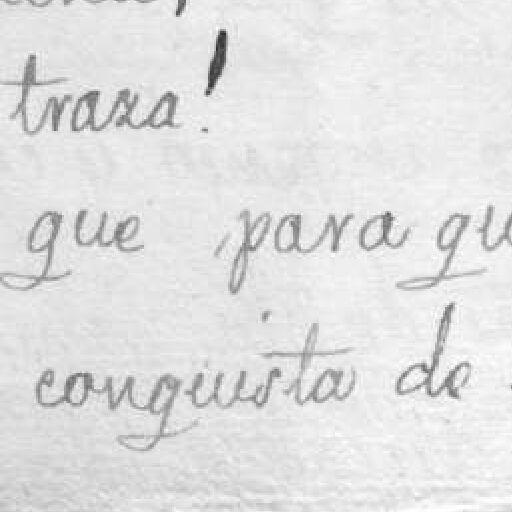 traza!
que para qu
conquista de